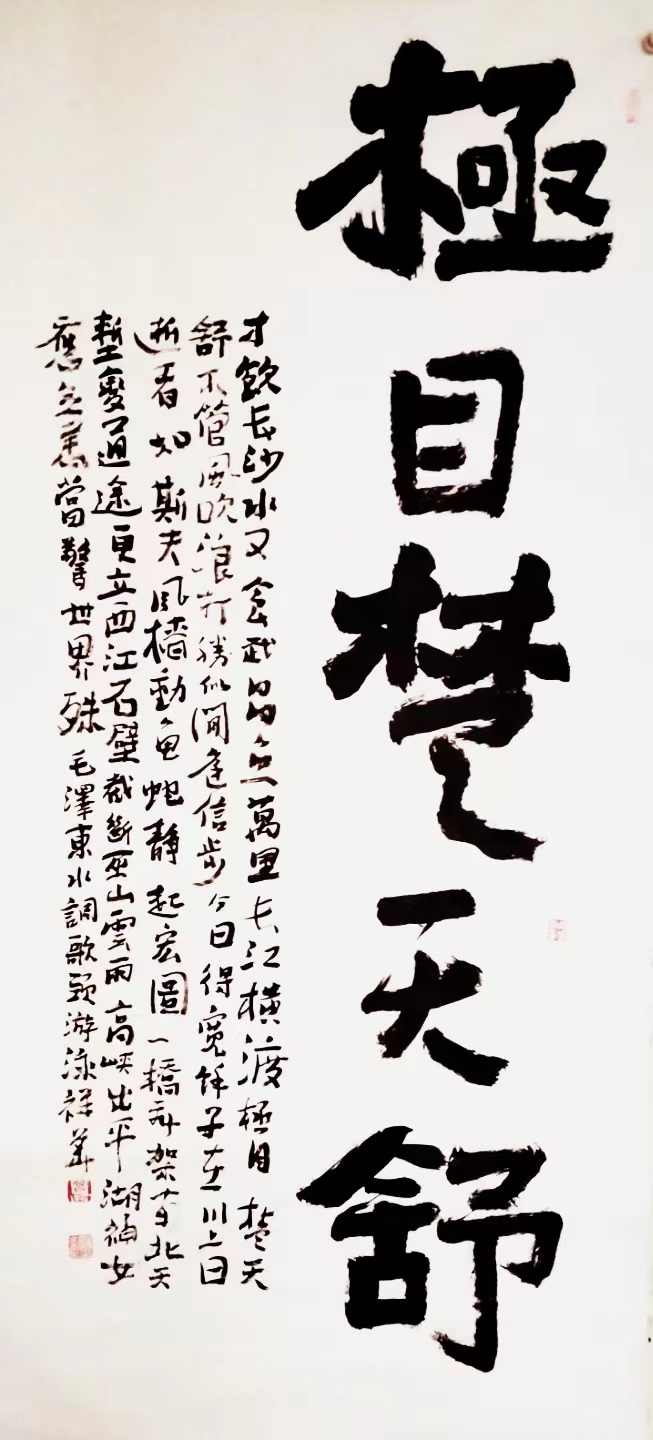 極目楚天舒
才飲長沙水又食武昌魚萬里長江橫渡極目楚天
舒不管風吹浪打勝似閒庭信步今日得寬餘子在川上曰
逝者如斯夫風檣動龜蛇靜起宏圖一橋飛架南北天
塹變通途更立西江石壁截斷巫山雲雨高峽出平湖神女
應無恙當驚世界殊毛澤東水調歌頭游泳祥